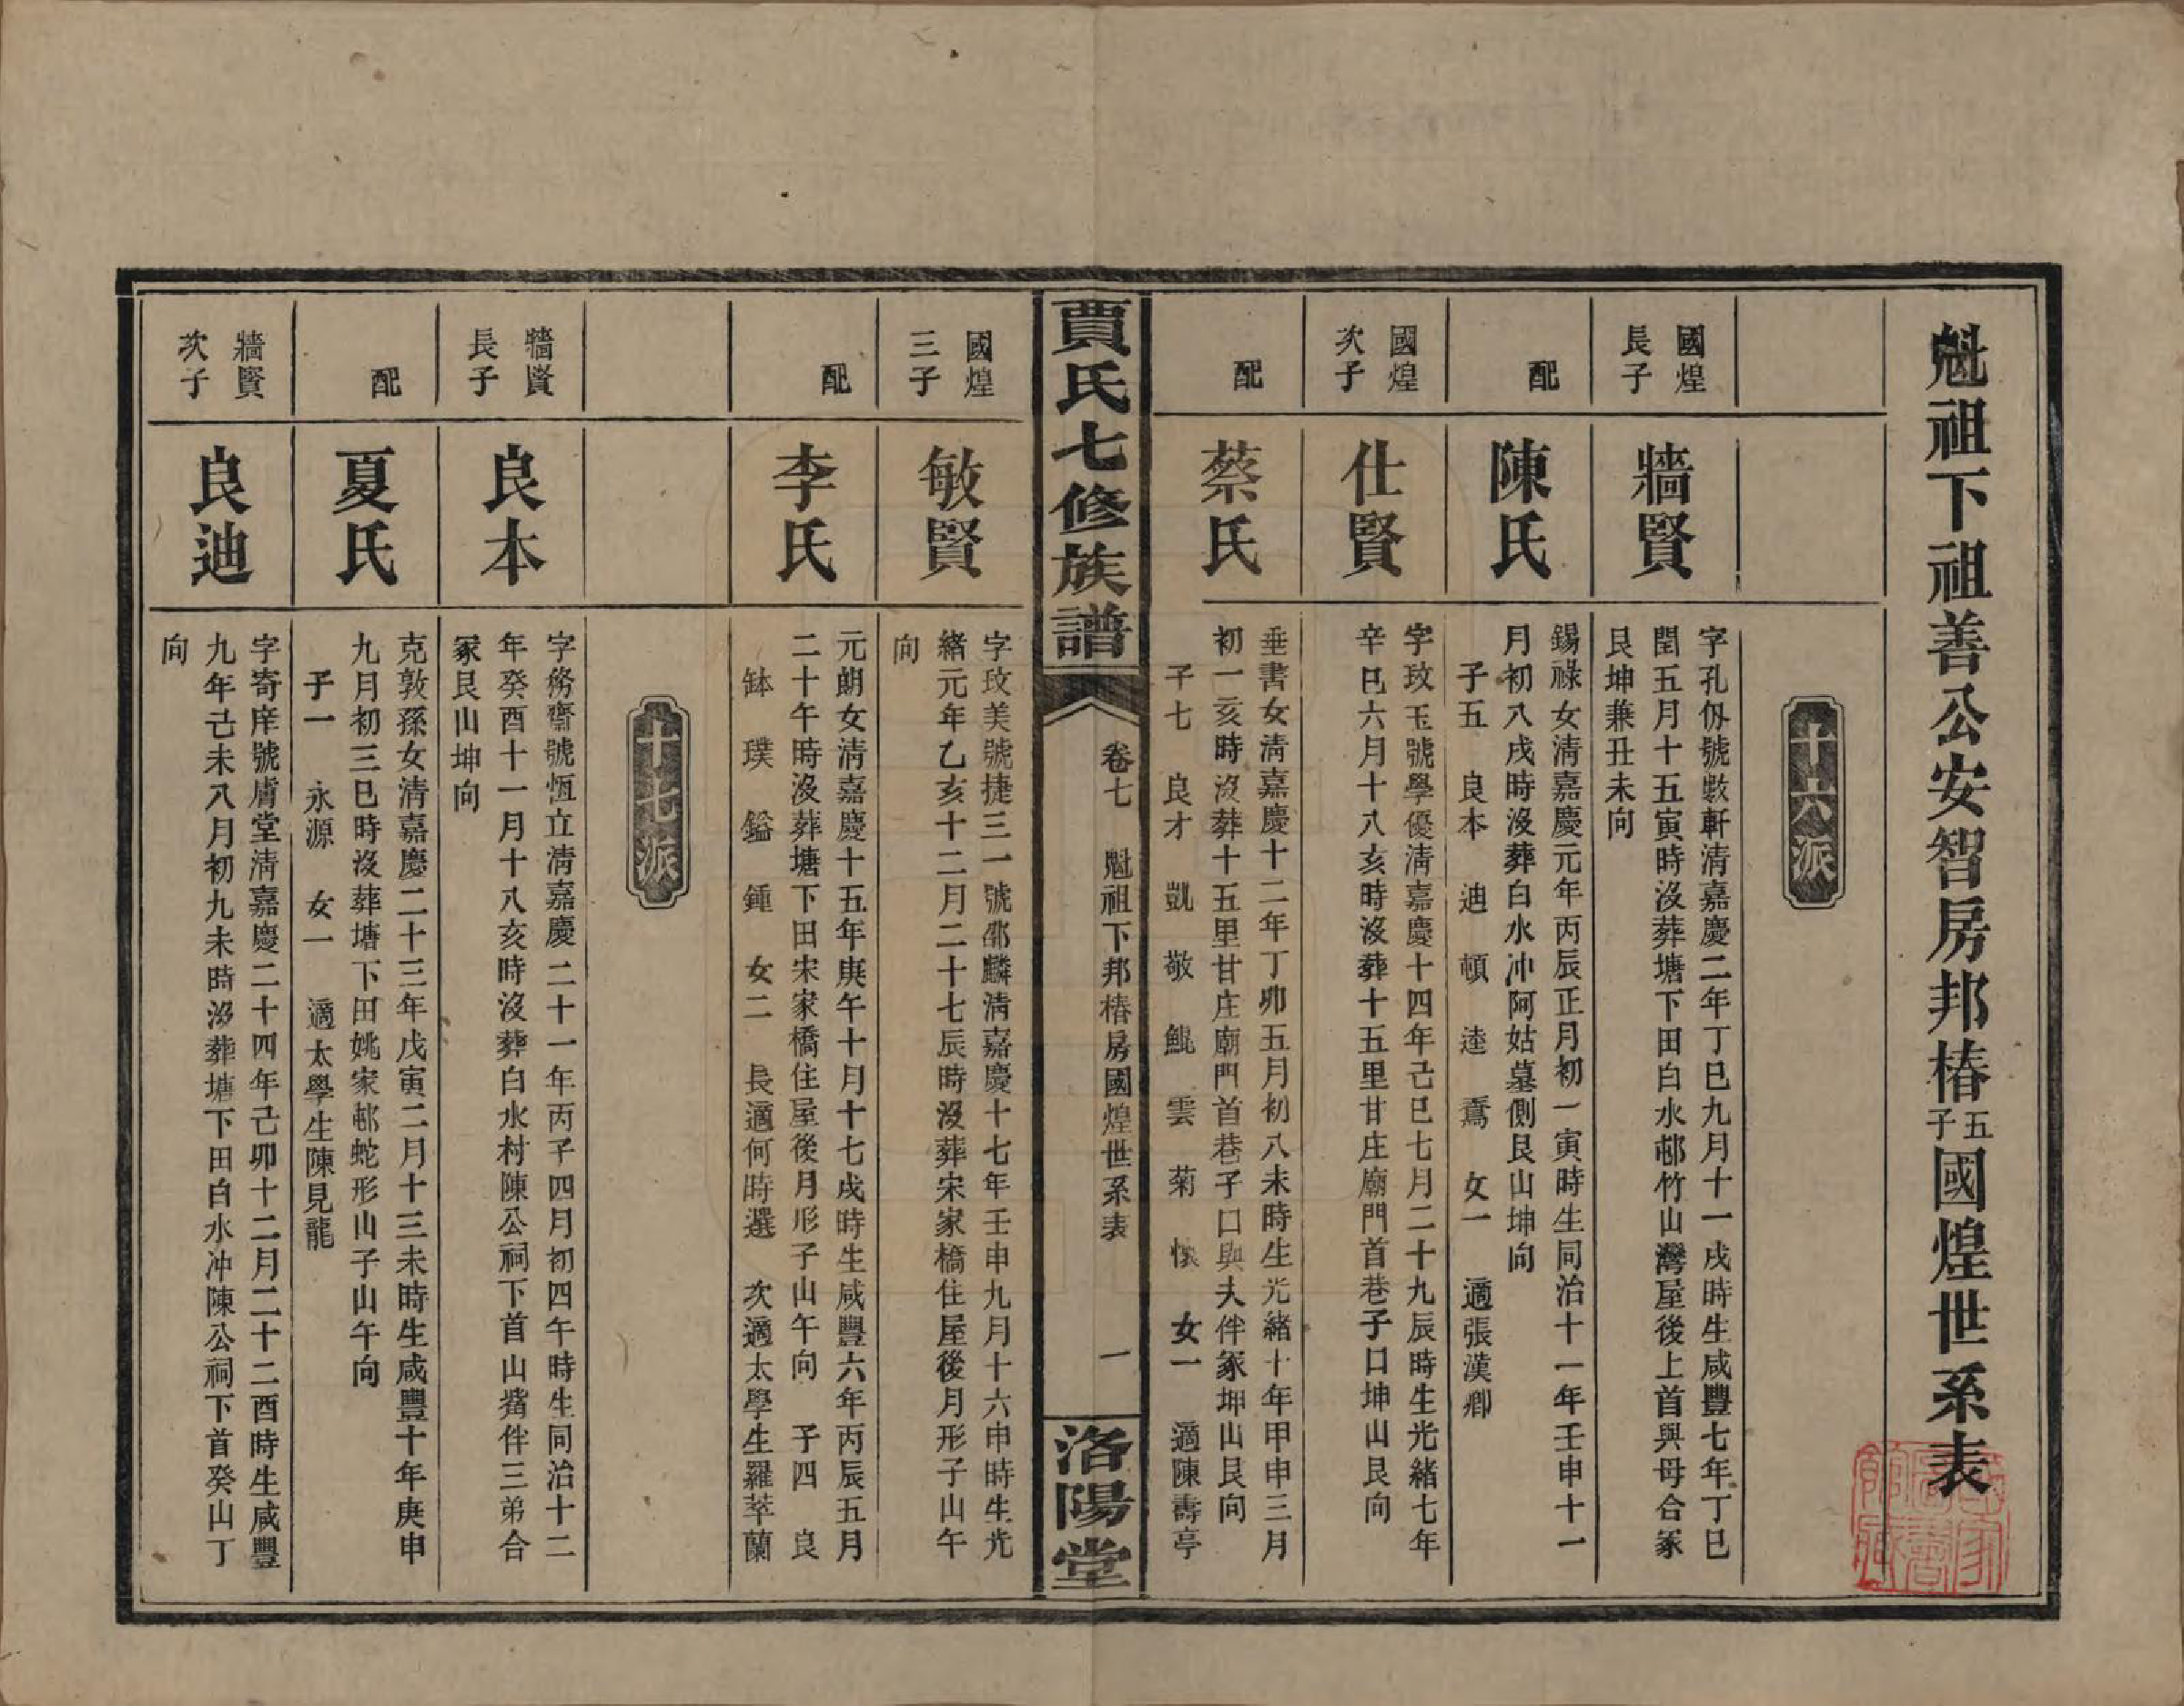 魁祖下祖善公安智房邦椿五子國煌世系表
十六派
國煌
長子
牆賢
字孔仞號數軒清嘉慶二年丁巳九月十一戌時生咸豐七年丁巳
閏五月十五寅時沒葬塘下田白水邨竹山灣屋後上首與母合冢
艮坤兼丑未向
配
陳氏
錫祿女清嘉慶元年丙辰正月初一寅時生同治十一年壬申十一
月初八戌時沒葬白水冲阿姑墓側艮山坤向
子五　良本　迪　頓　逵　騫　女一　適張漢卿
國煌
次子
仕賢
字玟玉號學優清嘉慶十四年己巳七月二十九辰時生光緒七年
辛巳六月十八亥時沒葬十五里甘庄廟門首巷子口坤山艮向
配
蔡氏
垂書女清嘉慶十二年丁卯五月初八未時生光緒十年甲申三月
初一亥時沒葬十五里甘庄廟門首巷子口與夫伴冢坤山艮向
子七　良才　凱　敬　鯤　雲　菊　懷　女一　適陳壽亭
賈氏七修族譜
卷七　魁祖下邦椿房國煌世系表
一
洛陽堂
國煌
三子
敏賢
字玟美號捷三一號邵麟清嘉慶十七年壬申九月十六申時生光
緒元年乙亥十二月二十七辰時沒葬宋家橋住屋後月形子山午
向
配
李氏
元朗女清嘉慶十五年庚午十月十七戌時生咸豐六年丙辰五月
二十午時沒葬塘下田宋家橋住屋後月形子山午向　子四　良
缽　璞　鎰　鍾　女二　長適何時選　次適太學生羅萃蘭
十七派
牆賢
長子
良本
字務齋號恆立清嘉慶二十一年丙子四月初四午時生同治十二
年癸酉十一月十八亥時沒葬白水村陳公祠下首山觜伴三弟合
冢艮山坤向
配
夏氏
克敦孫女清嘉慶二十三年戊寅二月十三未時生咸豐十年庚申
九月初三巳時沒葬塘下田姚家邨蛇形山子山午向
子一　永源　女一　適太學生陳見龍
牆賢
次子
良迪
字寄庠號膚堂清嘉慶二十四年己卯十二月二十二酉時生咸豐
九年己未八月初九未時沒葬塘下田白水冲陳公祠下首癸山丁
向